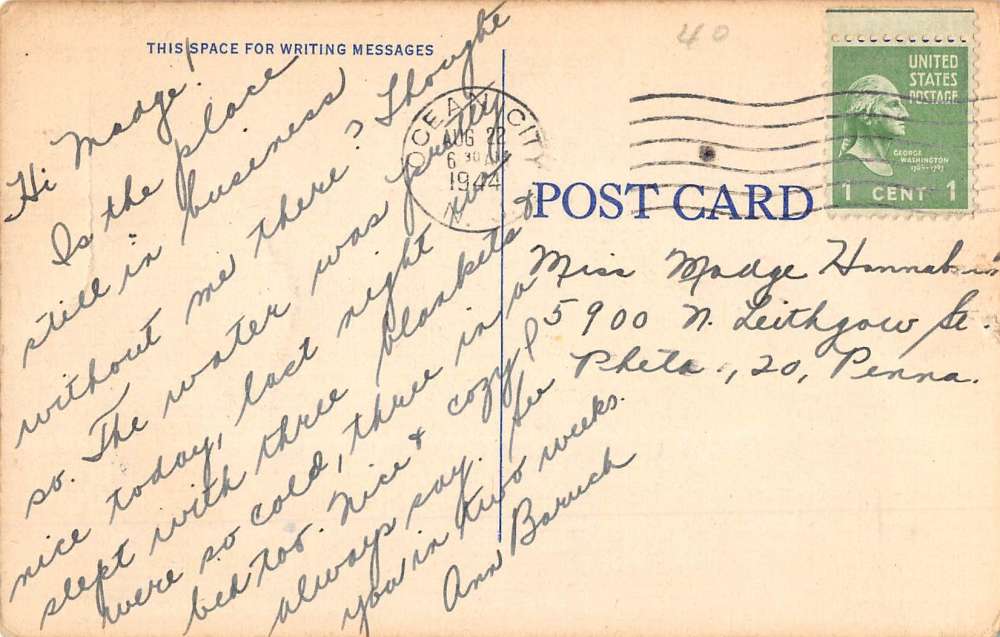 THIS SPACE FOR WRITING MESSAGES
Hi Madge!
Is the place
still in business
without me there? Thought
so. The water was pretty
nice today, last night
slept with three blankets &
were so cold, three in a
bed too. Nice & cozy I
always say. See
you in two weeks.
Ann Baruch
40
OCEAN CITY
AUG 22
6 30
1944
UNITED
STATES
POSTAGE
GEORGE
WASHINGTON
1 CENT 1
POST CARD
Miss Madge
5900 N. Leithgow St.
Phela., 20, Penna.